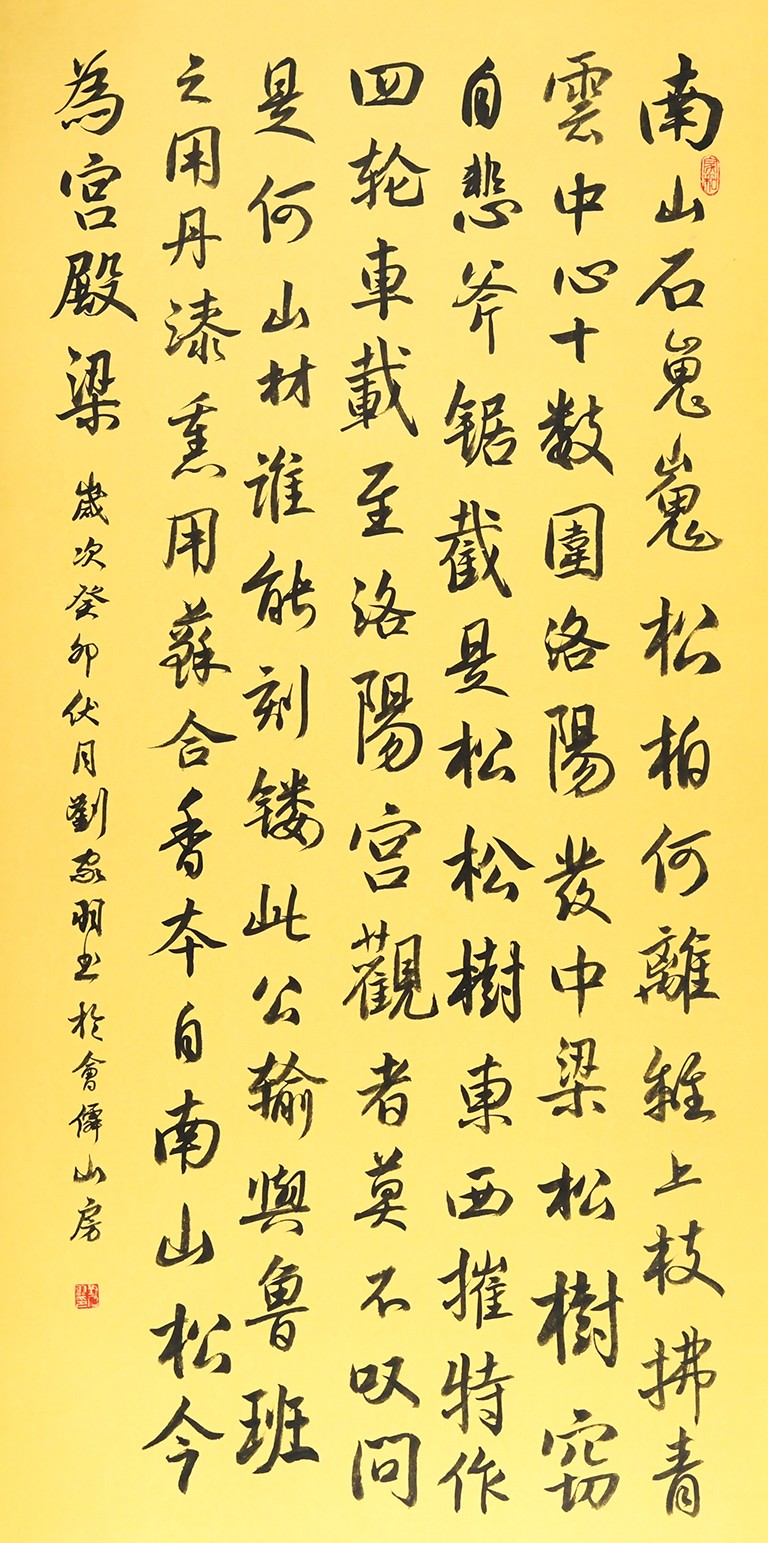 南山石嵬嵬松柏何離離上枝拂青
雲中心十數圍洛陽發中梁松樹窃
自悲斧锯截是松松樹東西摧特作
四轮車載至洛陽宫觀者莫不叹問
是何山材谁能刻镂此公输與魯班
之用丹漆熏用蘇合香本自南山松今
為宫殿梁
歲次癸卯伏月劉家明书於會僊山房